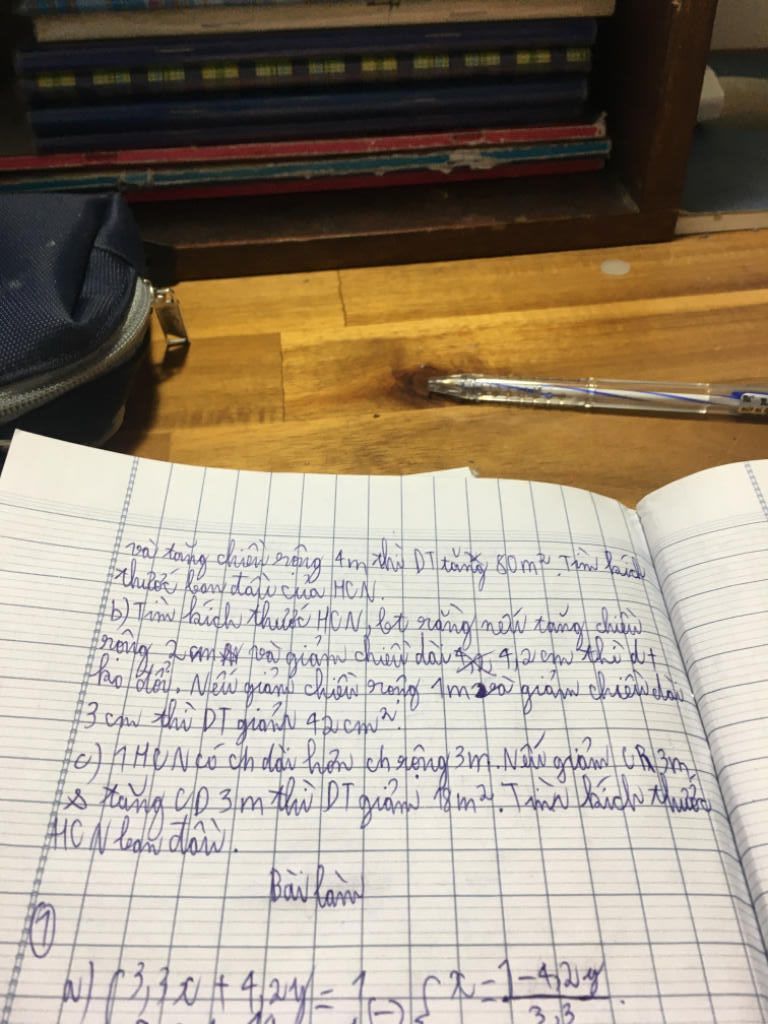 và tăng chiều rộng 4m thì DT tăng 80m². Tìm kích
thước ban đầu của HCN.
b) Tìm kích thước HCN, bt rằng nếu tăng chiều
rộng 2cm và giảm chiều dài 4,2cm thì dt
ko đổi. Nếu giảm chiều rộng 1m và giảm chiều dài
3 cm thì DT giảm 42cm².
c) 1 HCN có ch dài hơn ch rộng 3m. Nếu giảm CR 3m,
tăng CD 3m thì DT giảm 18m². Tìm kích thước
HCN ban đầu.
Bài làm
1
a) { 3,3x + 4,2y = 1 (-) { x = 1-4,2y / 3,3